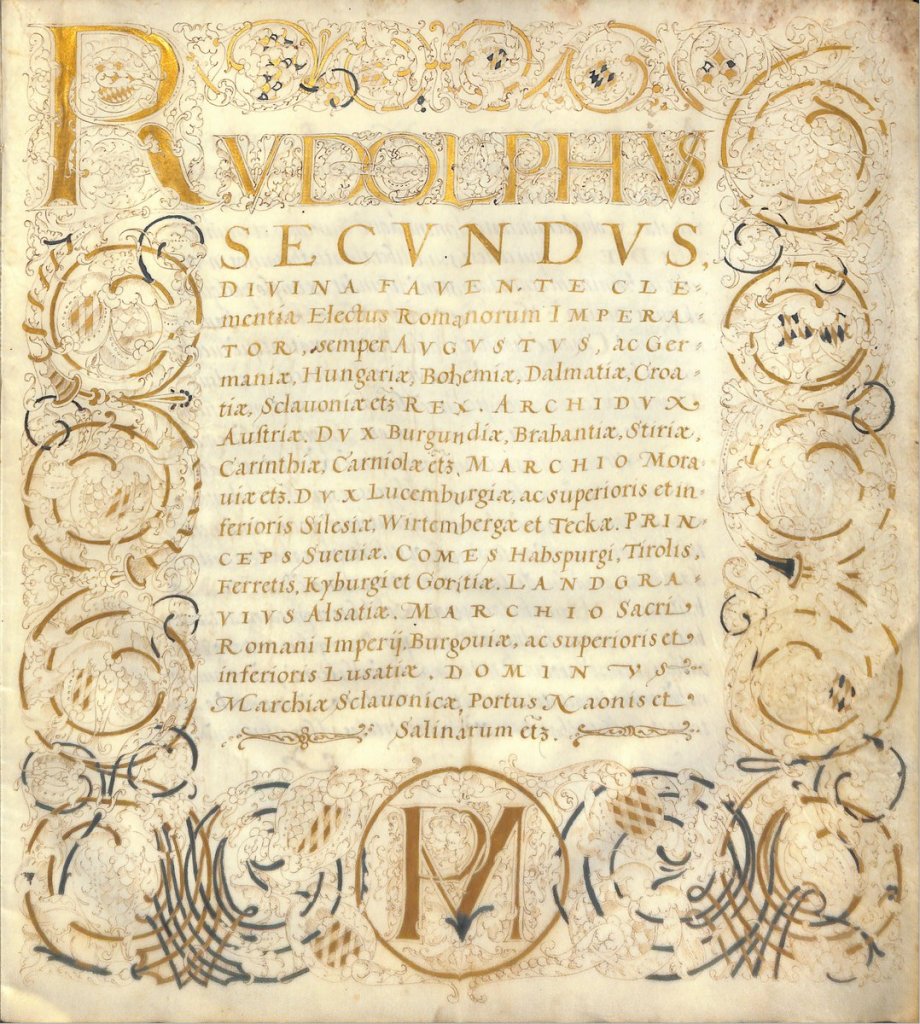 RVDOLPHVS
SECVNDVS,
DIVINA FAVENTE CLE-
mentia Electus Romanorum IMPERA-
TOR, semper AVGVSTVS, ac Ger-
maniæ, Hungariæ, Bohemiæ, Dalmatiæ, Croa-
tiæ, Sclauoniæ etꝫ REX. ARCHIDVX
Austriæ. DVX Burgundiæ, Brabantiæ, Stiriæ,
Carinthiæ, Carniolæ etꝫ. MARCHIO Mora-
uiæ etꝫ. DVX Lucemburgiæ, ac superioris et in-
ferioris Silesiæ, Wirtembergæ et Teckæ. PRIN-
CEPS Sueuiæ. COMES Habspurgi, Tirolis,
Ferretis, Kyburgi et Goritiæ. LANDGRA-
VIVS Alsatiæ. MARCHIO Sacri
Romani Imperij. Burgouiæ, ac superioris et
inferioris Lusatiæ. DOMINVS
Marchiæ Sclauonicæ, Portus Naonis et
Salinarum etꝫ.